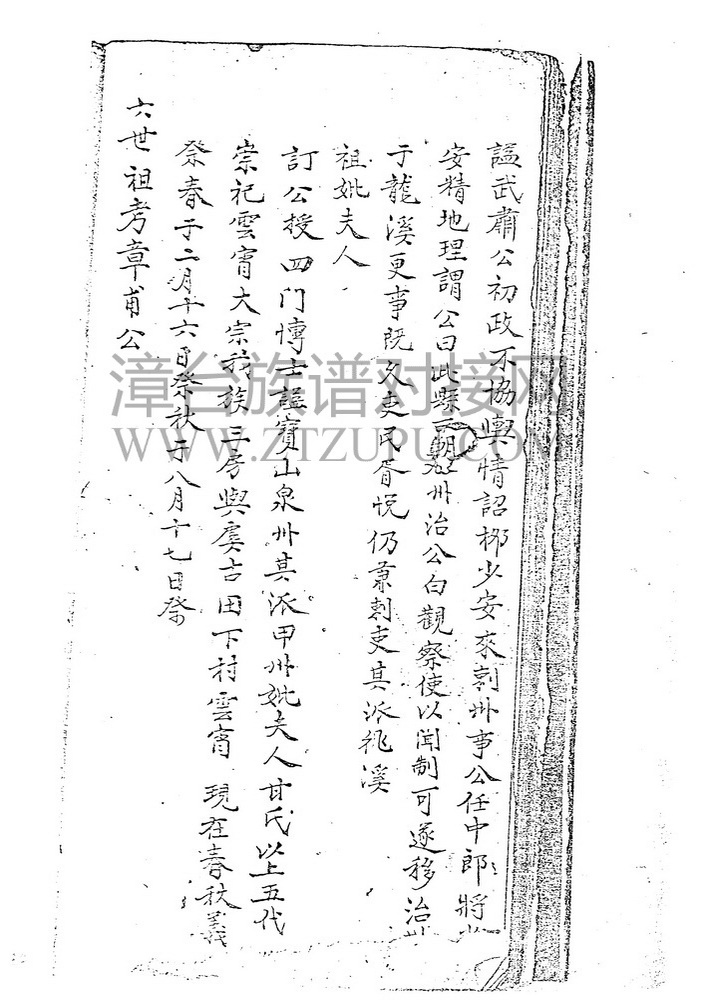 謚武肅公初政不協輿情詔栁少安來剌州事公任中郎將少
安精地理謂公曰此縣州治公白觀察使以聞制可遂移治
于龍溪更事既久吏民胥悅仍兼刺吏其派祧溪
祖妣夫人
訂公授四门博士謚寶山泉州其派甲州妣夫人甘氏以上五代
崇祀雲霄大宗我族三房與虞古田下村雲霄 現在春秋義
祭春于二月十六日祭秋于八月十七日祭
六世祖考章甫公
漳台族谱对接网
WWW.ZTZUPU.COM